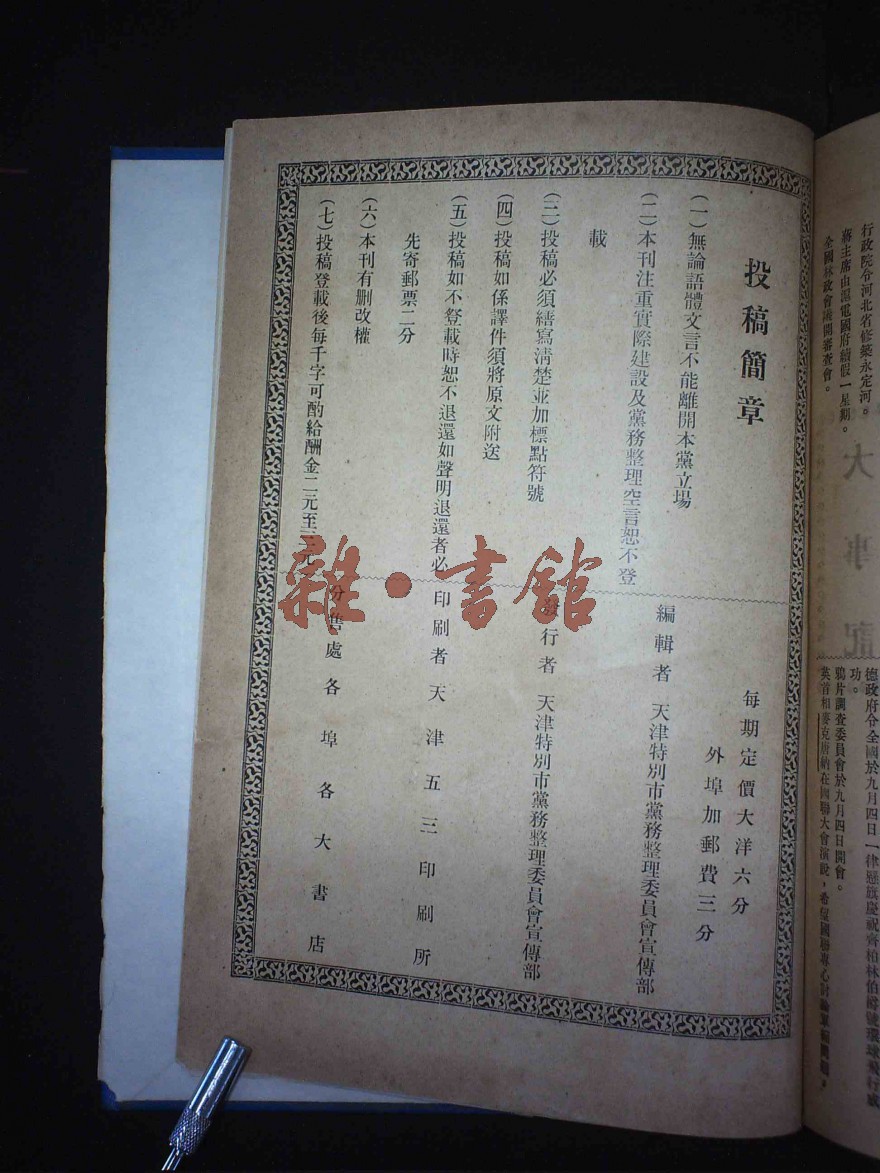 行政院令河北省修築永定河。
蔣主席由滬電國府續假一星期。
全國林政會議開審查會。
大事記
德政府令全國於九月四日一律懸旗慶祝齊柏林伯爵號環球飛行成
功。
鴉片調查委員會於九月四日開會。
英首相麥克唐納在國聯大會演說,希望國聯專心討論
投稿簡章
(一)無論語體文言不能離開本黨立場
(二)本刊注重實際建設及黨務整理空言恕不登
載
(三)投稿必須繕寫清楚並加標點符號
(四)投稿如係譯件須將原文附送
(五)投稿如不登載時恕不退還如聲明退還者必
先寄郵票二分
(六)本刊有刪改權
(七)投稿登載後每千字可酌給酬金二元至三元
每期定價大洋六分
外埠加郵費三分
編輯者 天津特別市黨務整理委員會宣傳部
發行者 天津特別市黨務整理委員會宣傳部
印刷者 天津五三印刷所
分售處 各埠各大書店
雜·書館